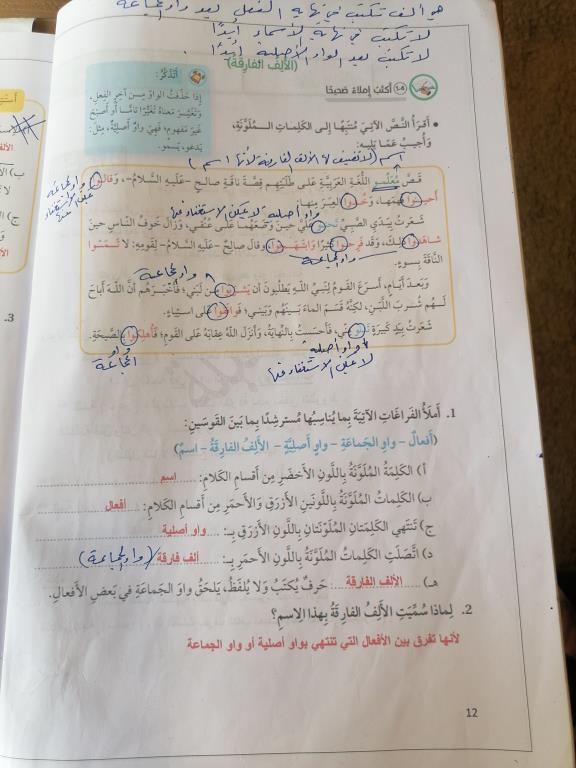 هو ألف تكتب في نهاية الفعل بعد واو الجماعة
لا تكتب في نهاية الأسماء أبدًا
لا تكتب بعد الواو الأصلية أبدًا.
(الألف الفارقة)
أكتب إملاءً صحيحًا
أتذكر:
إذا حذفت الواو من آخر الفعل،
وتغير معناه تغيرًا تامًا أو أصبح
غير مفهوم؛ فهي واو أصلية، مثل:
يدعو، يسمو.
• أقرأ النص الآتي منتبهًا إلى الكلمات الملونة،
وأجيب عما يليه:
قص معلمو اللغة العربية على طلبتهم قصة ناقة صالح -عليه السلام-، وقالوا:
أحيوا فهمها، وخذوا العبر منها:
شعرت بيدي الصبي تحنو علي حين وضعهما على عنقي، وزال خوف الناس حين
شاهدوا ذلك، وقد فرحوا كثيرًا واشتهدوا، وقال صالح -عليه السلام- لقومه: لا تمسوا
الناقة بسوء.
وبعد أيام، أسرع القوم لنبي الله يطلبون أن يشربوا من لبني؛ فأخبرهم أن الله أباح
لهم شرب اللبن، لكنه قسم الماء بينهم وبيني؛ فوافقوا على استياء.
شعرت بيد كبيرة تدنو مني، فأحسست بالنهاية، وأنزل الله عقابه على القوم؛ فأهلكوا بالصيحة.
واو الجماعة
واو أصلية
لا يمكن الاستغناء عنها
1. أملأ الفراغات الآتية بما يناسبها مسترشدًا بما بين القوسين:
(أفعال - واو الجماعة - واو أصلية - الألف الفارقة - اسم)
أ) الكلمة الملونة باللون الأخضر من أقسام الكلام: اسم
ب) الكلمات الملونة باللونين الأزرق والأحمر من أقسام الكلام: أفعال
ج) تنتهي الكلمتان الملونتان باللون الأزرق بـ: واو أصلية
د) اتصلت الكلمات الملونة باللون الأحمر بـ: ألف فارقة (واو الجماعة)
هـ) الألف الفارقة: حرف يكتب ولا يلفظ، يلحق واو الجماعة في بعض الأفعال.
2. لماذا سميت الألف الفارقة بهذا الاسم؟
لأنها تفرق بين الأفعال التي تنتهي بواو أصلية أو واو الجماعة
12
3.